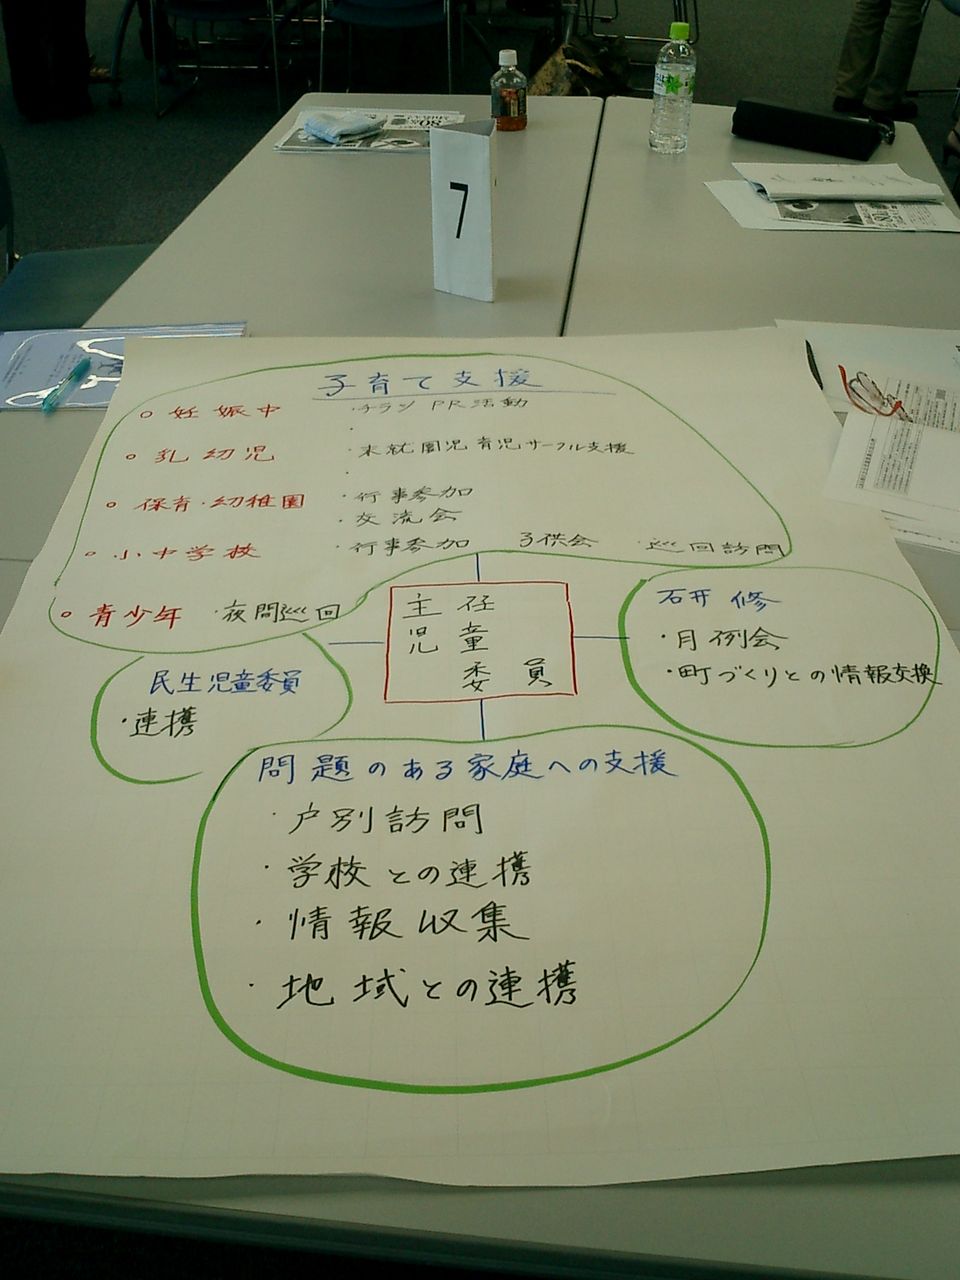 7
子育て支援
○ 妊娠中 ・チラシ PR活動
・
○ 乳幼児 ・未就園児育児サークル支援
・
○ 保育・幼稚園 ・行事参加
・交流会
○ 小中学校 ・行事参加 子供会 ・巡回訪問
○ 青少年 ・夜間巡回
主任
児童
委員
研修
・月例会
・町づくりとの情報交換
民生児童委員
・連携
問題のある家庭への支援
・戸別訪問
・学校との連携
・情報収集
・地域との連携